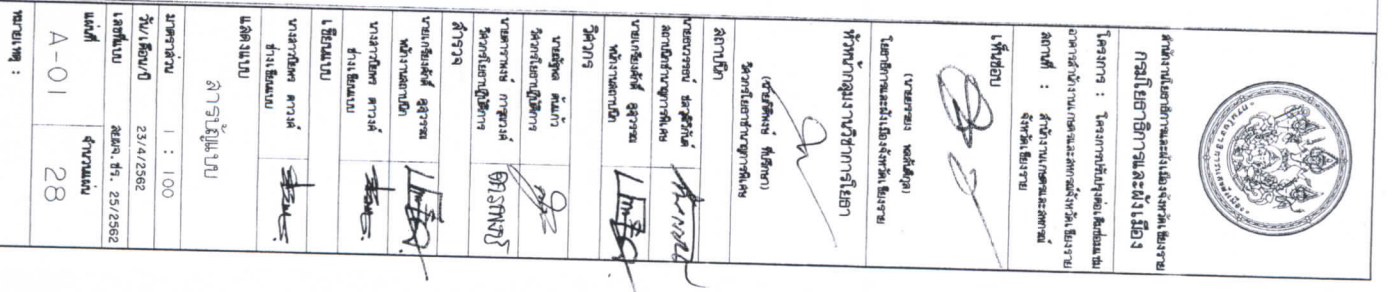 สำนักงานโยธาธิการและผังเมืองจังหวัดเชียงราย
กรมโยธาธิการและผังเมือง
โครงการ : โครงการปรับปรุงต่อเติมซ่อมแซม
อาคารสำนักงานเกษตรและสหกรณ์จังหวัดเชียงราย
สถานที่ : สำนักงานเกษตรและสหกรณ์
จังหวัดเชียงราย
เห็นชอบ
โยธาธิการและผังเมืองจังหวัดเชียงราย
หัวหน้ากลุ่มงานวิชาการโยธา
วิศวกรโยธาชำนาญการพิเศษ
สถาปนิก
สถาปนิกชำนาญการพิเศษ
นายเกรียงศักดิ์ อุสุวรรณ
พนักงานสถาปนิก
วิศวกร
วิศวกรโยธาปฏิบัติการ
วิศวกรโยธาปฏิบัติการ
สำรวจ
นายเกรียงศักดิ์ อุสุวรรณ
พนักงานสถาปนิก
นางสาวนิยพร ดาวงค์
ช่างเขียนแบบ
เขียนแบบ
นางสาวนิยพร ดาวงค์
ช่างเขียนแบบ
แสดงแบบ
สารบัญแบบ
มาตราส่วน 1 : 100
วัน/เดือน/ปี 23/4/2562
เลขที่แบบ ลยผจ.ชร. 25/2562
แผ่นที่ จำนวนแผ่น
A-01 28
หมายเหตุ :